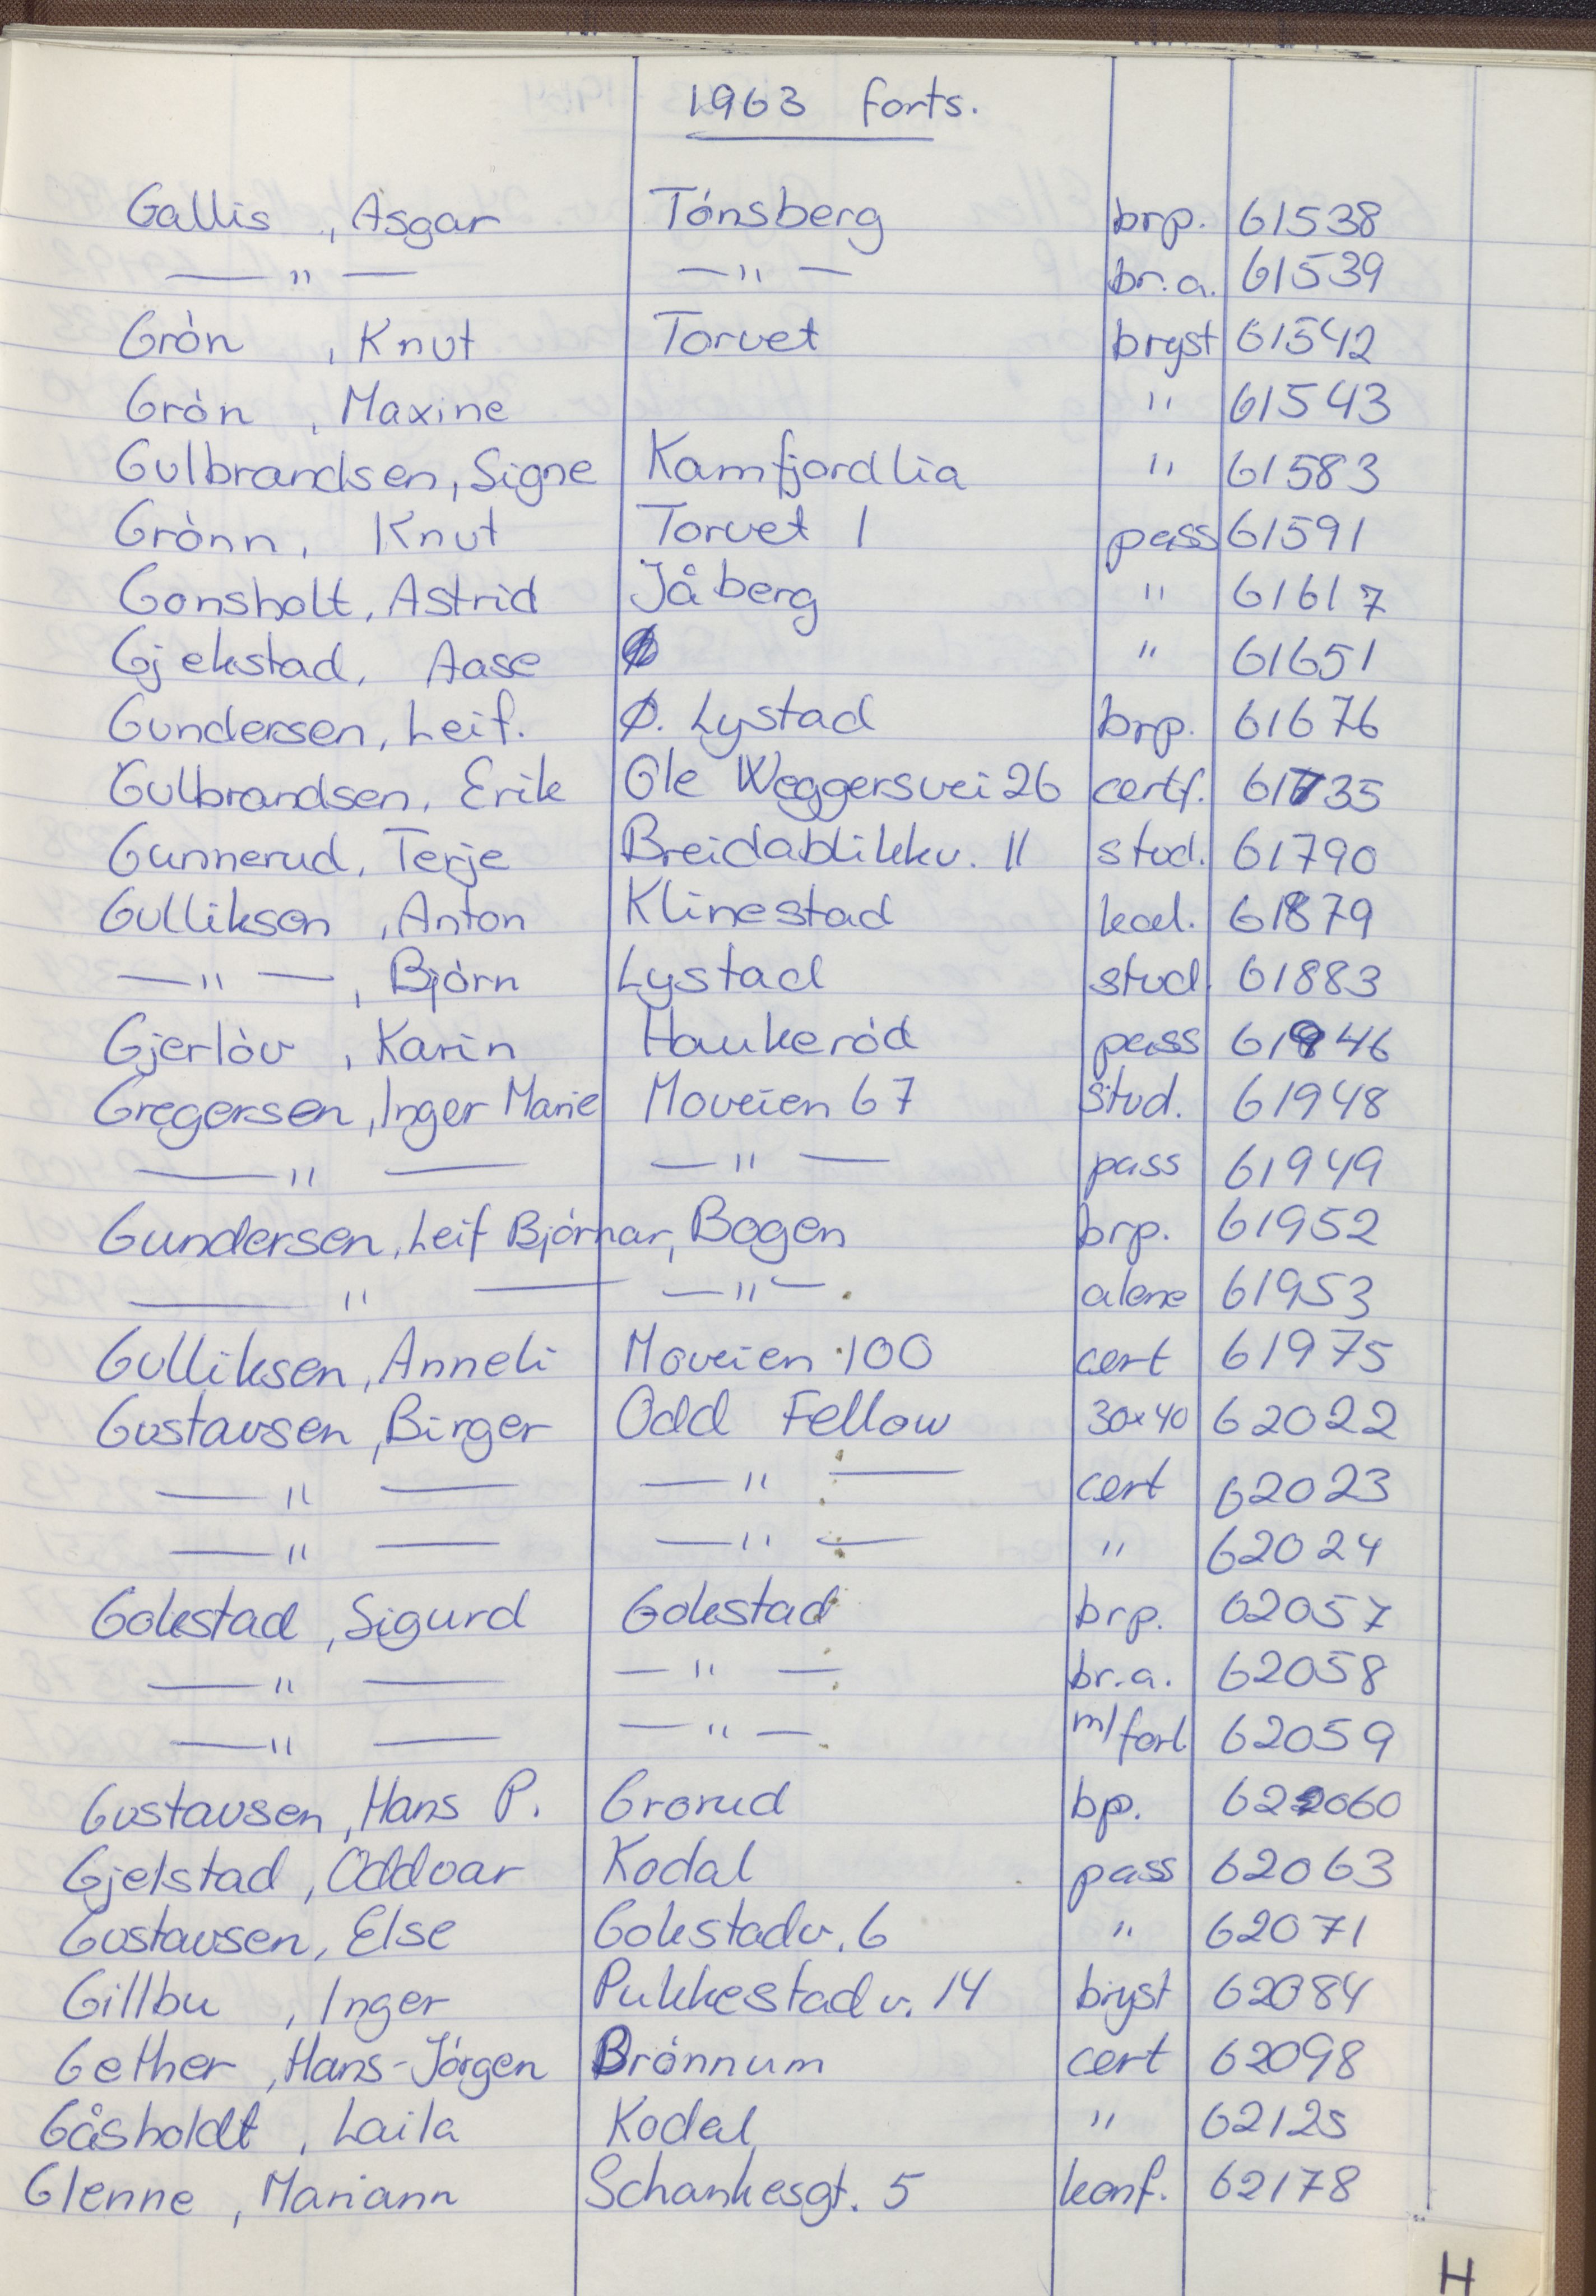 1963 forts.
Gallis , Asgar Tónsberg brp. 61538
— " — — " — br.a. 61539
Grón , Knut Torvet bryst 61542
Grón , Maxine " 61543
Gulbrandsen, Signe Kamfjordlia " 61583
Grónn, Knut Torvet 1 pass 61591
Gonsholt, Astrid Jåberg " 61617
Gjekstad, Aase " 61651
Gundersen, Leif. Ø. Lystad brp. 61676
Gulbrandsen, Erik Ole Weggersvei 26 certf. 61735
Gunnerud, Terje Breidablikkv. 11 stud. 61790
Gulliksen , Anton Klinestad kod. 61879
— " — , Bjórn Lystad stud. 61883
Gjerlóv , Karin Haukeród pass 61946
Gregersen, Inger Marie Moveien 67 Stud. 61948
— " — — " — pass 61949
Gundersen, Leif Bjórnar, Bogen brp. 61952
— " — — " — alene 61953
Gulliksen, Anneli Moveien 100 cert 61975
Gustavsen, Birger Odd Fellow 30x40 62022
— " — — " — cert 62023
— " — — " — " 62024
Gokstad , Sigurd Gokstad brp. 62057
— " — — " — br.a. 62058
— " — — " — m/forl. 62059
Gustavsen, Hans P. Grorud bp. 622060
Gjelstad, Oddvar Kodal pass 62063
Gustavsen, Else Gokstadv. 6 " 62071
Gillbu , Inger Pukkestadv. 14 bryst 62084
Gether , Hans-Jórgen Brónnum cert 62098
Gåsholdt , Laila Kodal " 62125
Glenne , Mariann Schankesgt. 5 konf. 62178
H